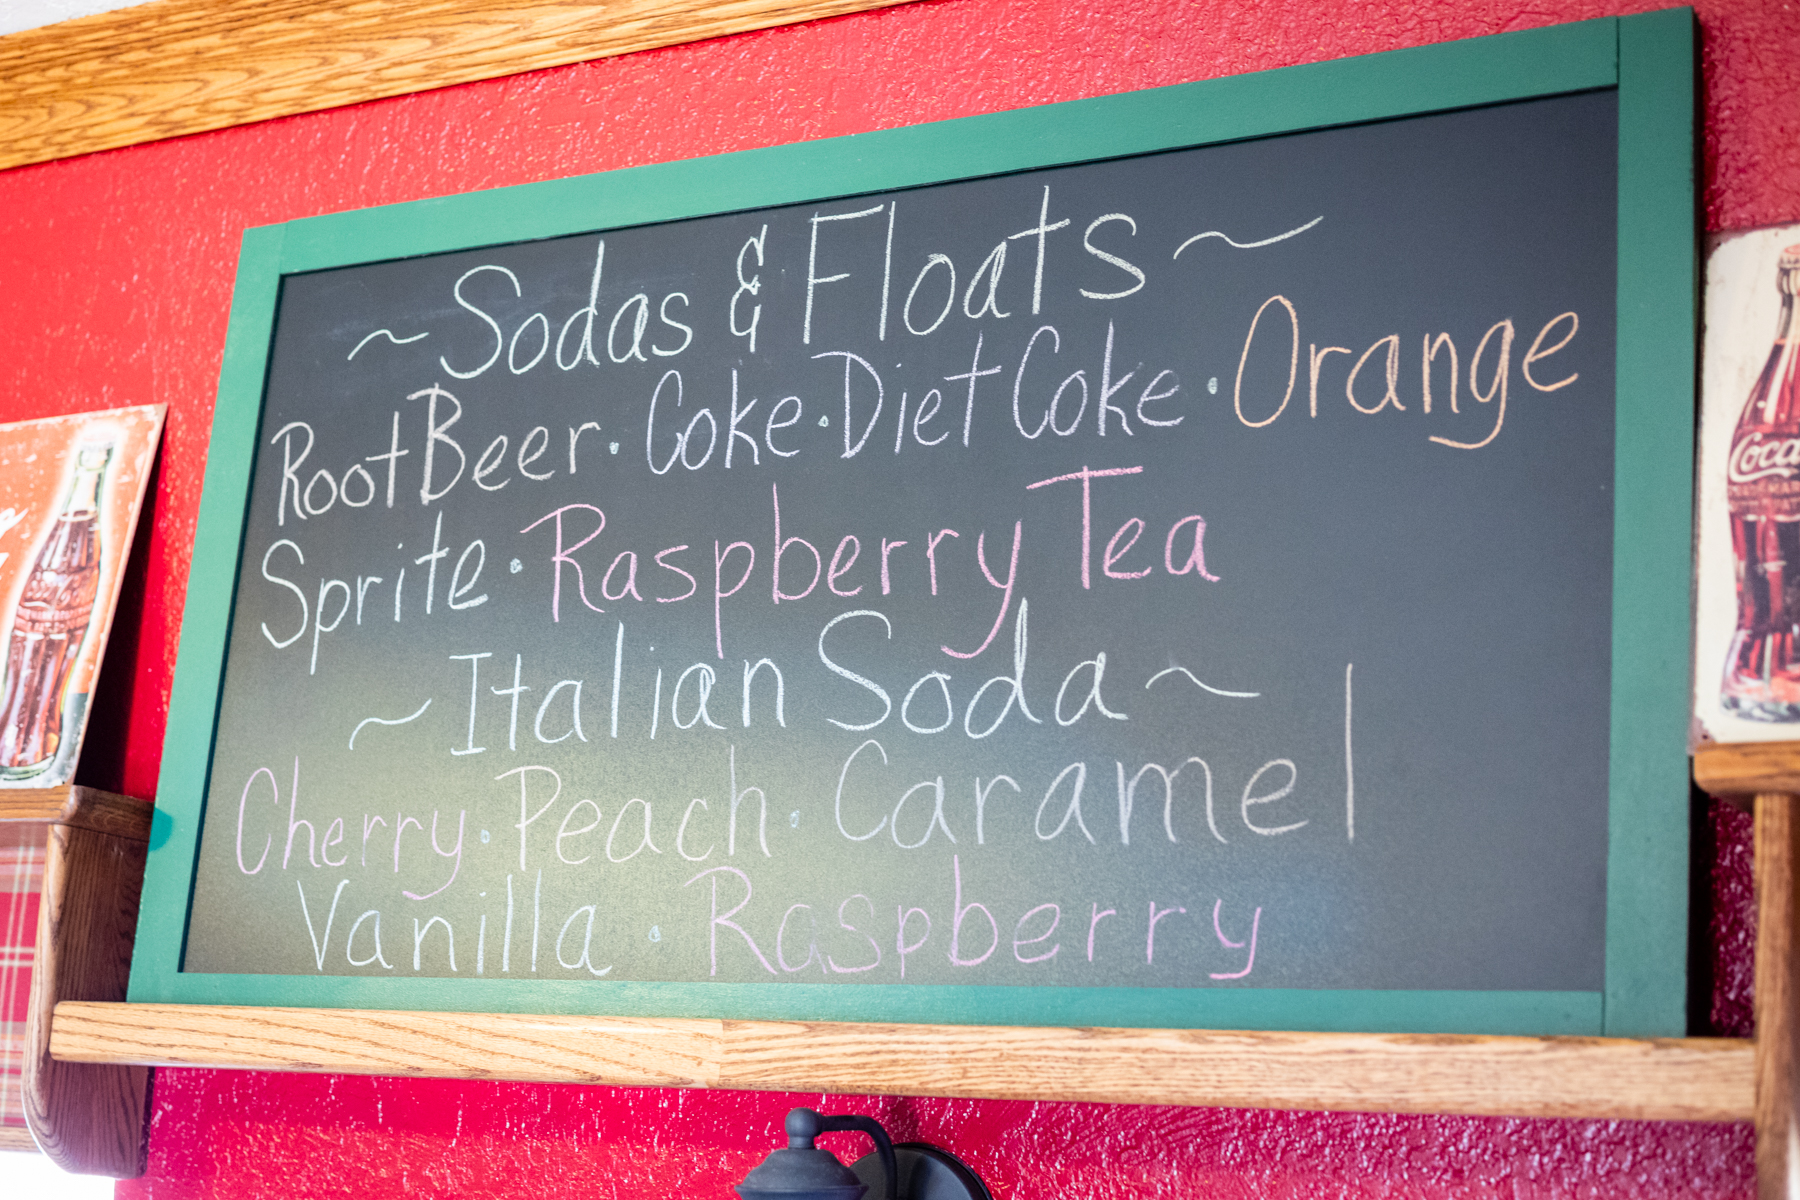 ~Sodas & Floats~
Root Beer · Coke · Diet Coke · Orange
Sprite · Raspberry Tea
~Italian Soda~
Cherry · Peach · Caramel
Vanilla · Raspberry
Coca